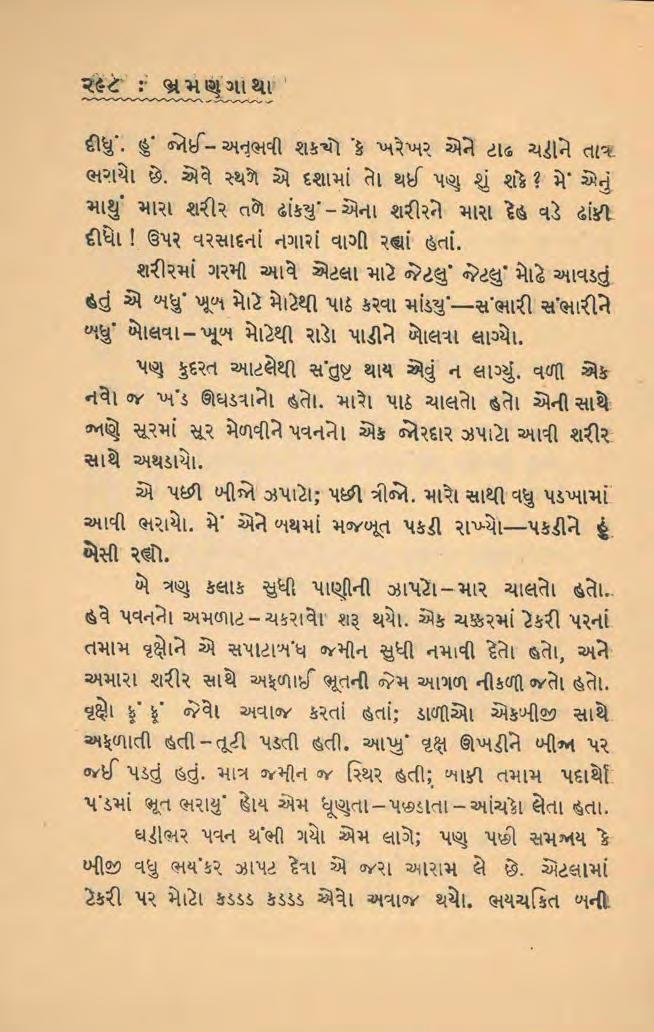 ૨૯૮ : ભ્રમણગાથા
દીધું. હું જોઈ–અનુભવી શકયો કે ખરેખર એને ટાઢ ચડીને તાવ
ભરાયો છે. એવે સ્થળે એ દશામાં તો થઈ પણ શું શકે? મેં એનું
માથું મારા શરીર તળે ઢાંકયું–એના શરીરને મારા દેહ વડે ઢાંકી
દીધો! ઉપર વરસાદનાં નગારાં વાગી રહ્યાં હતાં.
શરીરમાં ગરમી આવે એટલા માટે જેટલું જેટલું મોઢે આવડતું
હતું એ બધું ખૂબ મોટે મોટેથી પાઠ કરવા માંડયું—સંભારી સંભારીને
બધું બોલવા–ખૂબ મોટેથી રાડો પાડીને બોલવા લાગ્યો.
પણ કુદરત આટલેથી સંતુષ્ટ થાય એવું ન લાગ્યું. વળી એક
નવો જ ખંડ ઊઘડવાનો હતો. મારો પાઠ ચાલતો હતો એની સાથે
જાણે સૂરમાં સૂર મેળવીને પવનનો એક જોરદાર ઝપાટો આવી શરીર
સાથે અથડાયો.
એ પછી બીજો ઝપાટો; પછી ત્રીજો. મારો સાથી વધુ પડખામાં
આવી ભરાયો. મેં એને બથમાં મજબૂત પકડી રાખ્યો—પકડીને હું
બેસી રહ્યો.
બે ત્રણ કલાક સુધી પાણીની ઝાપટો–માર ચાલતો હતો.
હવે પવનનો અમળાટ–ચકરાવો શરૂ થયો. એક ચક્કરમાં ટેકરી પરનાં
તમામ વૃક્ષોને એ સપાટાબંધ જમીન સુધી નમાવી દેતો હતો, અને
અમારા શરીર સાથે અફળાઈ ભૂતની જેમ આગળ નીકળી જતો હતો.
વૃક્ષો ફૂં ફૂં જેવો અવાજ કરતાં હતાં; ડાળીઓ એકબીજી સાથે
અફળાતી હતી–તૂટી પડતી હતી. આખું વૃક્ષ ઊખડીને બીજા પર
જઈ પડતું હતું. માત્ર જમીન જ સ્થિર હતી; બાકી તમામ પદાર્થો
પંડમાં ભૂત ભરાયું હોય એમ ધૂણતા–પછડાતા–આંચકો લેતા હતા.
ઘડીભર પવન થંભી ગયો એમ લાગે; પણ પછી સમજાય કે
બીજી વધુ ભયંકર ઝાપટ દેવા એ જરા આરામ લે છે. એટલામાં
ટેકરી પર મોટો કડડડ કડડડ એવો અવાજ થયો. ભયચકિત બની